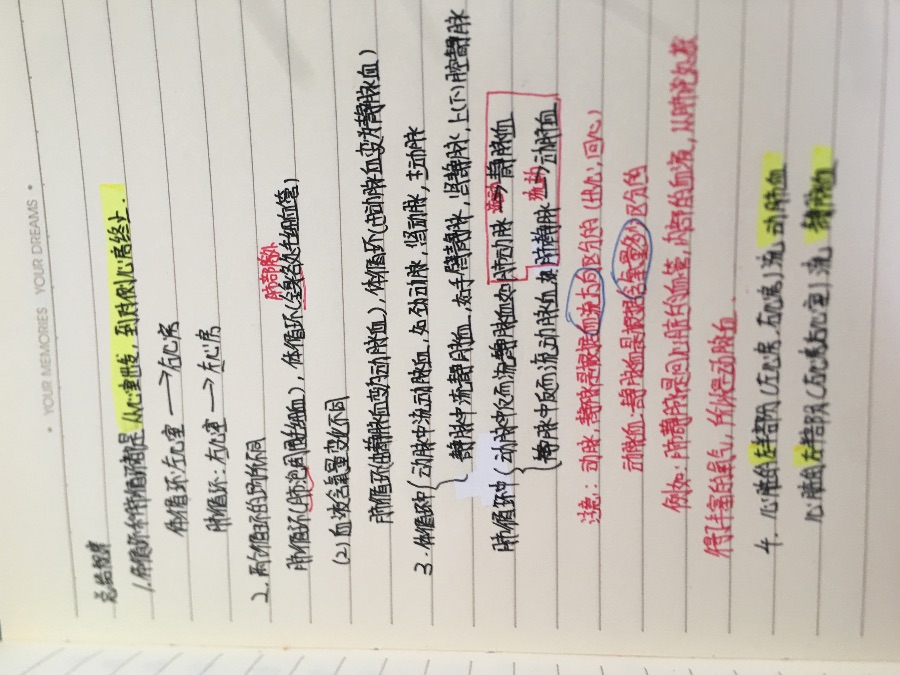 • YOUR MEMORIES YOUR DREAMS •
总结规律
1.体循环和肺循环都是从心室出发，到对侧心房终止.
体循环:左心室→右心房
肺循环:右心室→左心房
2.两个循环的场所不同
肺部除外
肺循环(肺泡周围毛细血管)，体循环(全身各处毛细血管)
(2)血液含氧量变化不同
肺循环(由静脉血变为动脉血)，体循环(由动脉血变为静脉血)
3.体循环中{动脉中流动脉血,如颈动脉,肾动脉,主动脉
静脉中流静脉血,如手臂静脉,肾静脉,上(下)腔静脉
肺循环中{动脉中反而流静脉血如肺动脉流动静脉血
静脉中反而流动脉血如肺静脉流动动脉血
注意:动脉.静脉是根据血流方向区分的(出心,回心)
动脉血.静脉血是根据含氧量多少区分的
例如:肺静脉是回心脏的血管,内部的血液,从肺泡处获
得了丰富的氧气,所以是动脉血.
4.心脏的左半部队(左心房.左心室)流动脉血
心脏的右半部队(右心房右心室)流静脉血